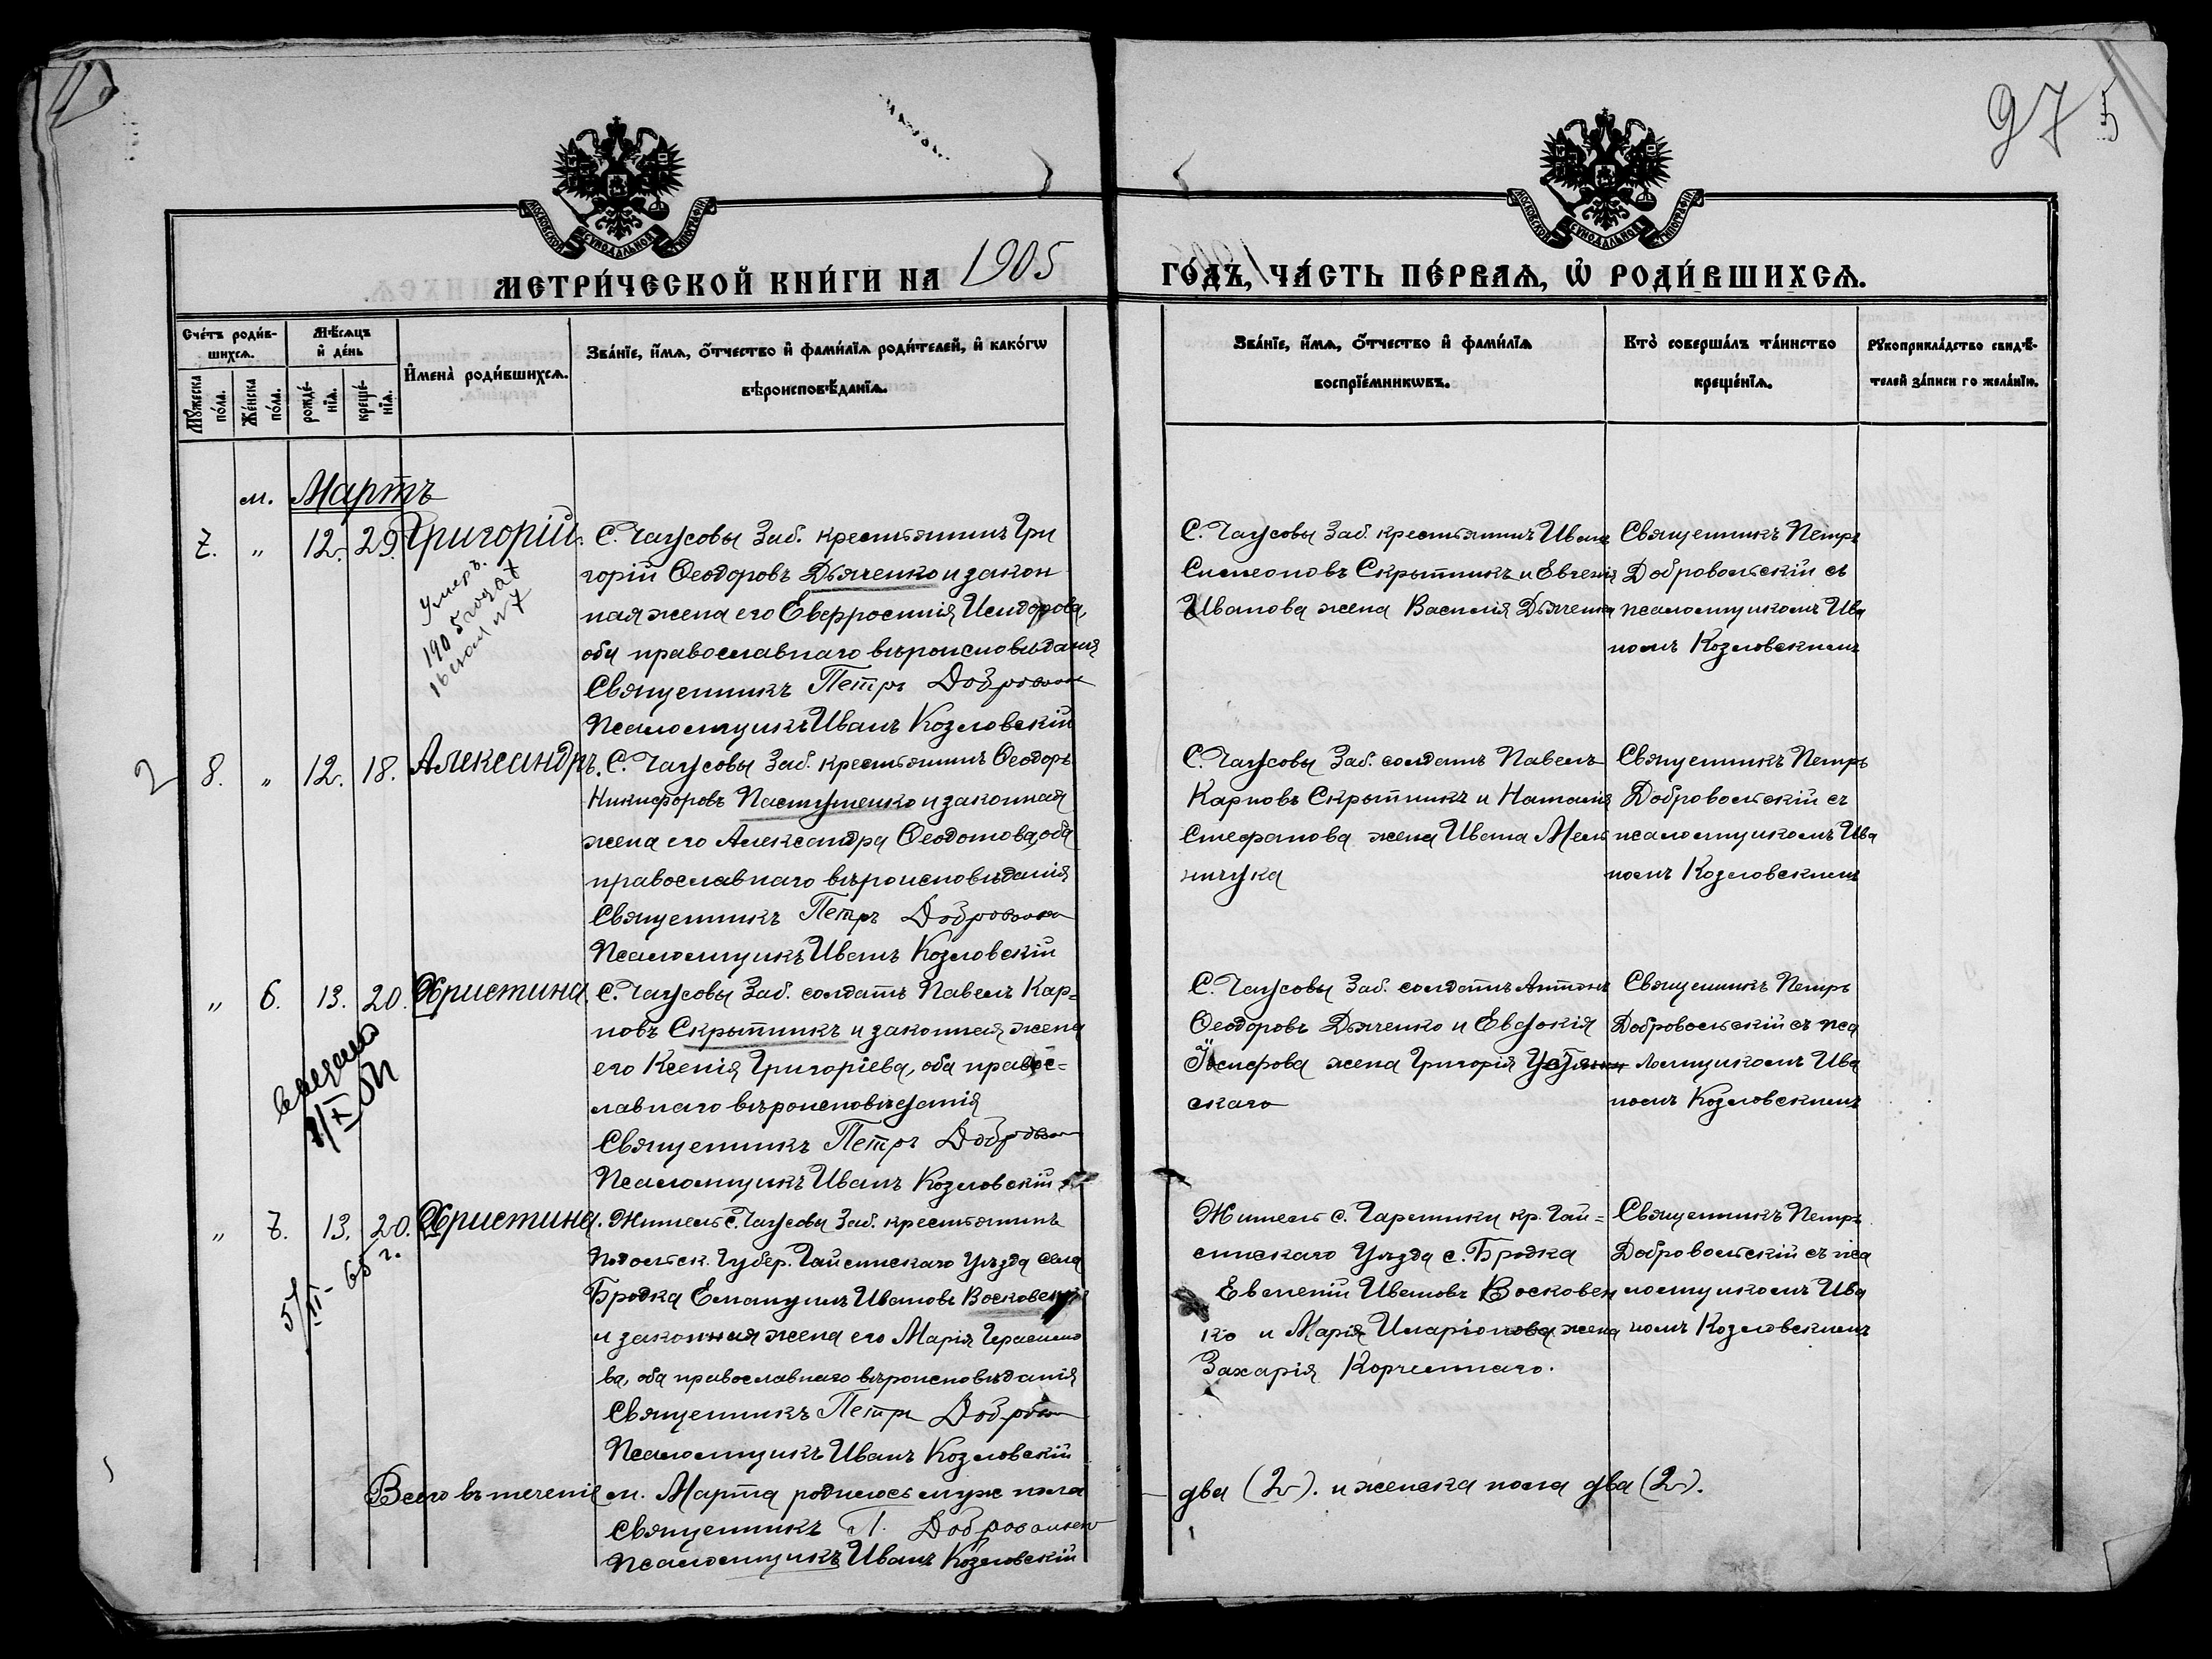 97 5
МОСКОВСКОЙ СѴНОДАЛЬНОЙ ТИПОГРАФІИ
МОСКОВСКОЙ СѴНОДАЛЬНОЙ ТИПОГРАФІИ
МЕТРИ́ЧЕСКОЙ КНИ́ГИ НА 1905 ГО́ДЪ, ЧА́СТЬ ПЕ́РВАѦ, Ѡ҆ РОДИ́ВШИХСѦ.
Сче́тъ роди́в-
шихсѧ.
Мꙋ́жеска
по́ла.
Же́нска
по́ла.
Мѣ́сѧцъ
и҆ де́нь
рожде́-
нїѧ.
креще́-
нїѧ.
И҆мена̀ роди́вшихсѧ.
Зва́нїе, и҆́мѧ, ѻ҆́тчество и҆ фами́лїѧ роди́телей, и҆ како́гѡ
вѣроисповѣ́данїѧ.
Зва́нїе, и҆́мѧ, ѻ҆́тчество и҆ фами́лїѧ
воспрїе́мникѡвъ.
Кто̀ соверша́лъ та́инство
креще́нїѧ.
Рꙋкоприкла́дство свидѣ́-
телей за́писи по жела́нїю.
м. Мартъ
7. „ 12. 29. Григорій.
Умеръ.
1905 года
С. Чаусовы Заб. крестьянинъ Гри
горій Ѳеодоровъ Дьяченко и закон
ная жена его Евфросинія Исидорова,
оба православнаго вѣроисповѣданія
Священникъ Петръ Доброволь
Псаломщикъ Иванъ Козловскій
С. Чаусовы Заб. крестьянинъ Иванъ
Симеоновъ Скрытникъ и Евгенія
Иванова жена Василія Дьяченка
Священникъ Петръ
Добровольскій съ
псаломщикомъ Ива
номъ Козловскимъ
2 8. „ 12. 18. Александръ.
С. Чаусовы Заб. крестьянинъ Ѳеодоръ
Никифоровъ Пастушенко и законная
жена его Александра Ѳеодотова, оба
православнаго вѣроисповѣданія
Священникъ Петръ Доброволь
Псаломщикъ Иванъ Козловскій
С. Чаусовы Заб. солдатъ Павелъ
Карповъ Скрытникъ и Наталія
Стефанова жена Ивана Мель
ничука
Священникъ Петръ
Добровольскій съ
псаломщикомъ Ива
номъ Козловскимъ
„ 6. 13. 20. Христина.
С. Чаусовы Заб. солдатъ Павелъ Кар=
повъ Скрытникъ и законная жена
его Ксенія Григоріева, оба правос=
лавнаго вѣроисповѣданія
Священникъ Петръ Доброволь
Псаломщикъ Иванъ Козловскій
С. Чаусовы Заб. солдатъ Антонъ
Ѳеодоровъ Дьяченко и Евдокія
Іосифова жена Григорія
скаго
Священникъ Петръ
Добровольскій съ пса
ломщикомъ Ива
номъ Козловскимъ
„ 7. 13. 20. Христина.
65 г.
Житель с. Чаусовы Заб. крестьянинъ
Подольск. Губер. Гайсинскаго Уѣзда села
Бродка Емануилъ Ивановъ
и законная жена его Марія Герасимо
ва, оба православнаго вѣроисповѣданія
Священникъ Петръ Доброволь
Псаломщикъ Иванъ Козловскій
Житель с. кр. Гай=
синскаго Уѣзда с. Бродка
Евменій Ивановъ Восковен
ко и Марія Иларіонова жена
Захарія Корчемнаго.
Священникъ Петръ
Добровольскій съ пса
ломщикомъ Ива
номъ Козловскимъ
Всего въ теченіе м. Марта родилось муж. пола два (2). и женска пола два (2).
Священникъ П. Добровольск
Псаломщикъ Иванъ Козловскій